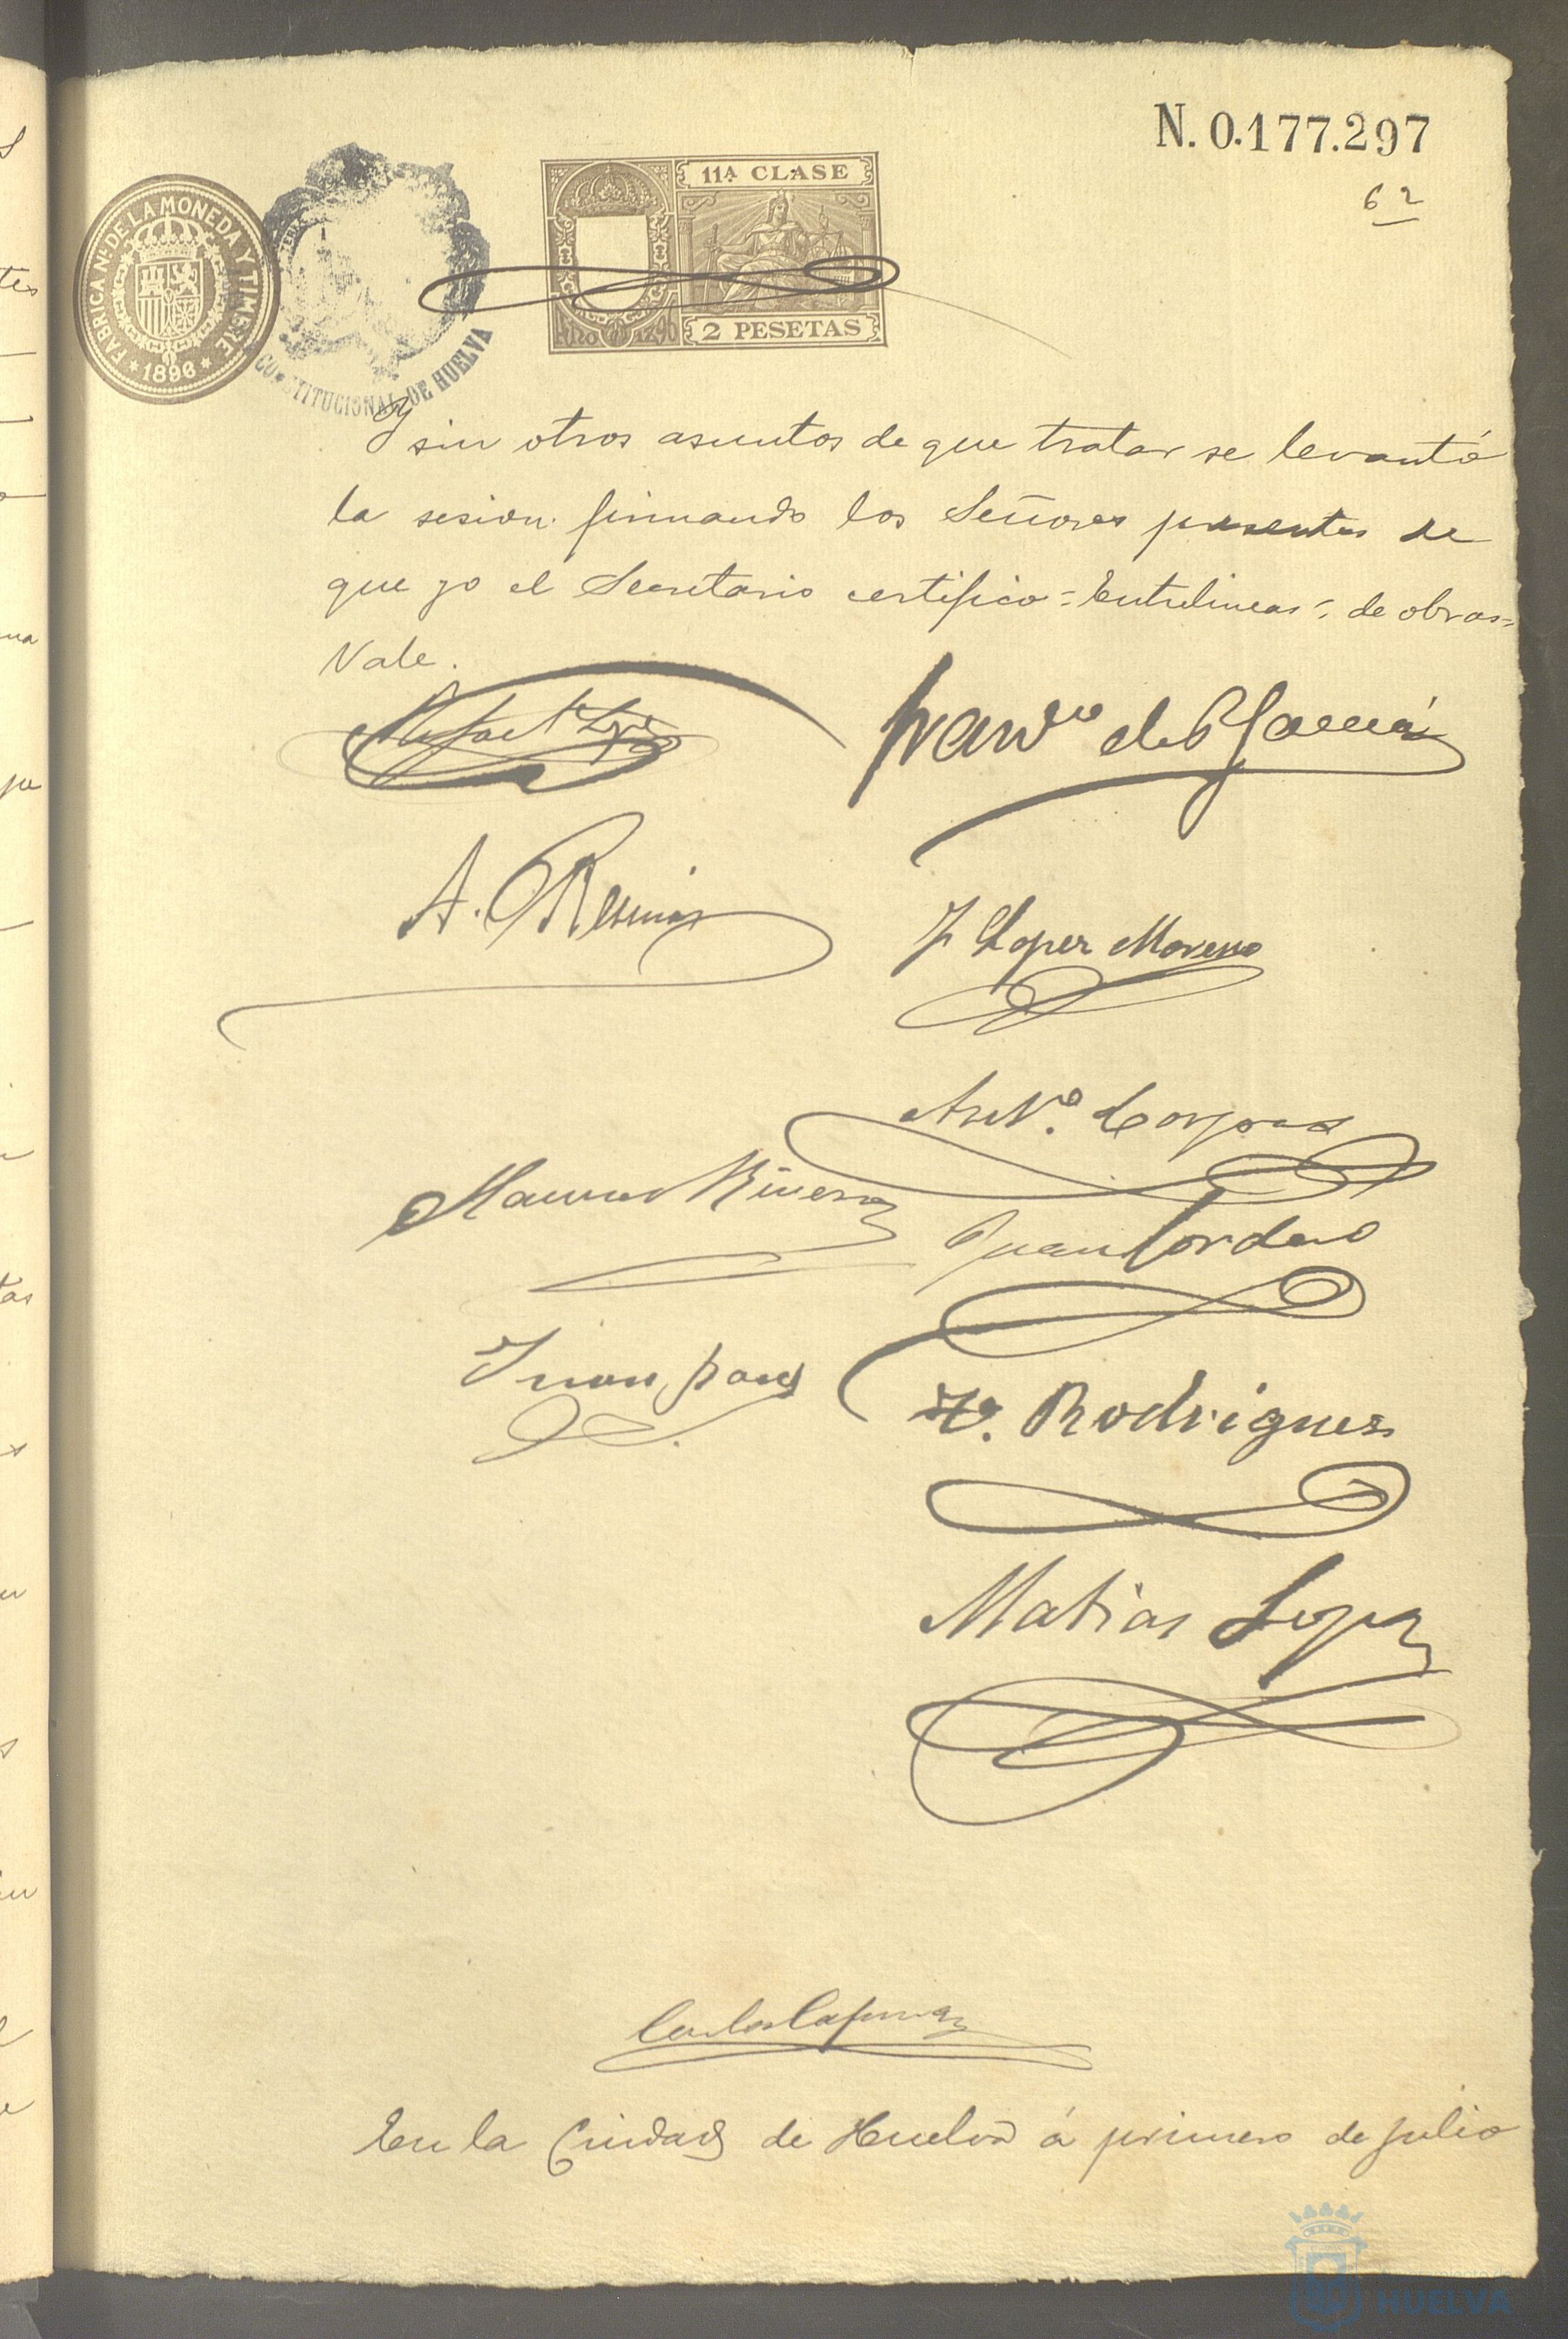 N. 0.177.297
62
FABRICA N. DE LA MONEDA Y TIMBRE
* 1896 *
CONSTITUCIONAL DE HUELVA
11ª CLASE
2 PESETAS
Y sin otros asuntos de que tratar se levantó
la sesion firmando los Señores presentes de
que yo el Secretario certifico = Entrelineas = de obras =
Vale.
Rafael López
Franco de P. García
A. Resinas
J López Moreno
Antº. Corpas
Manuel Rivera
Juan Cordero
Juan
Fº. Rodriguez
Matias Lopez
En la Ciudad de Huelva á primero de Julio
HUELVA